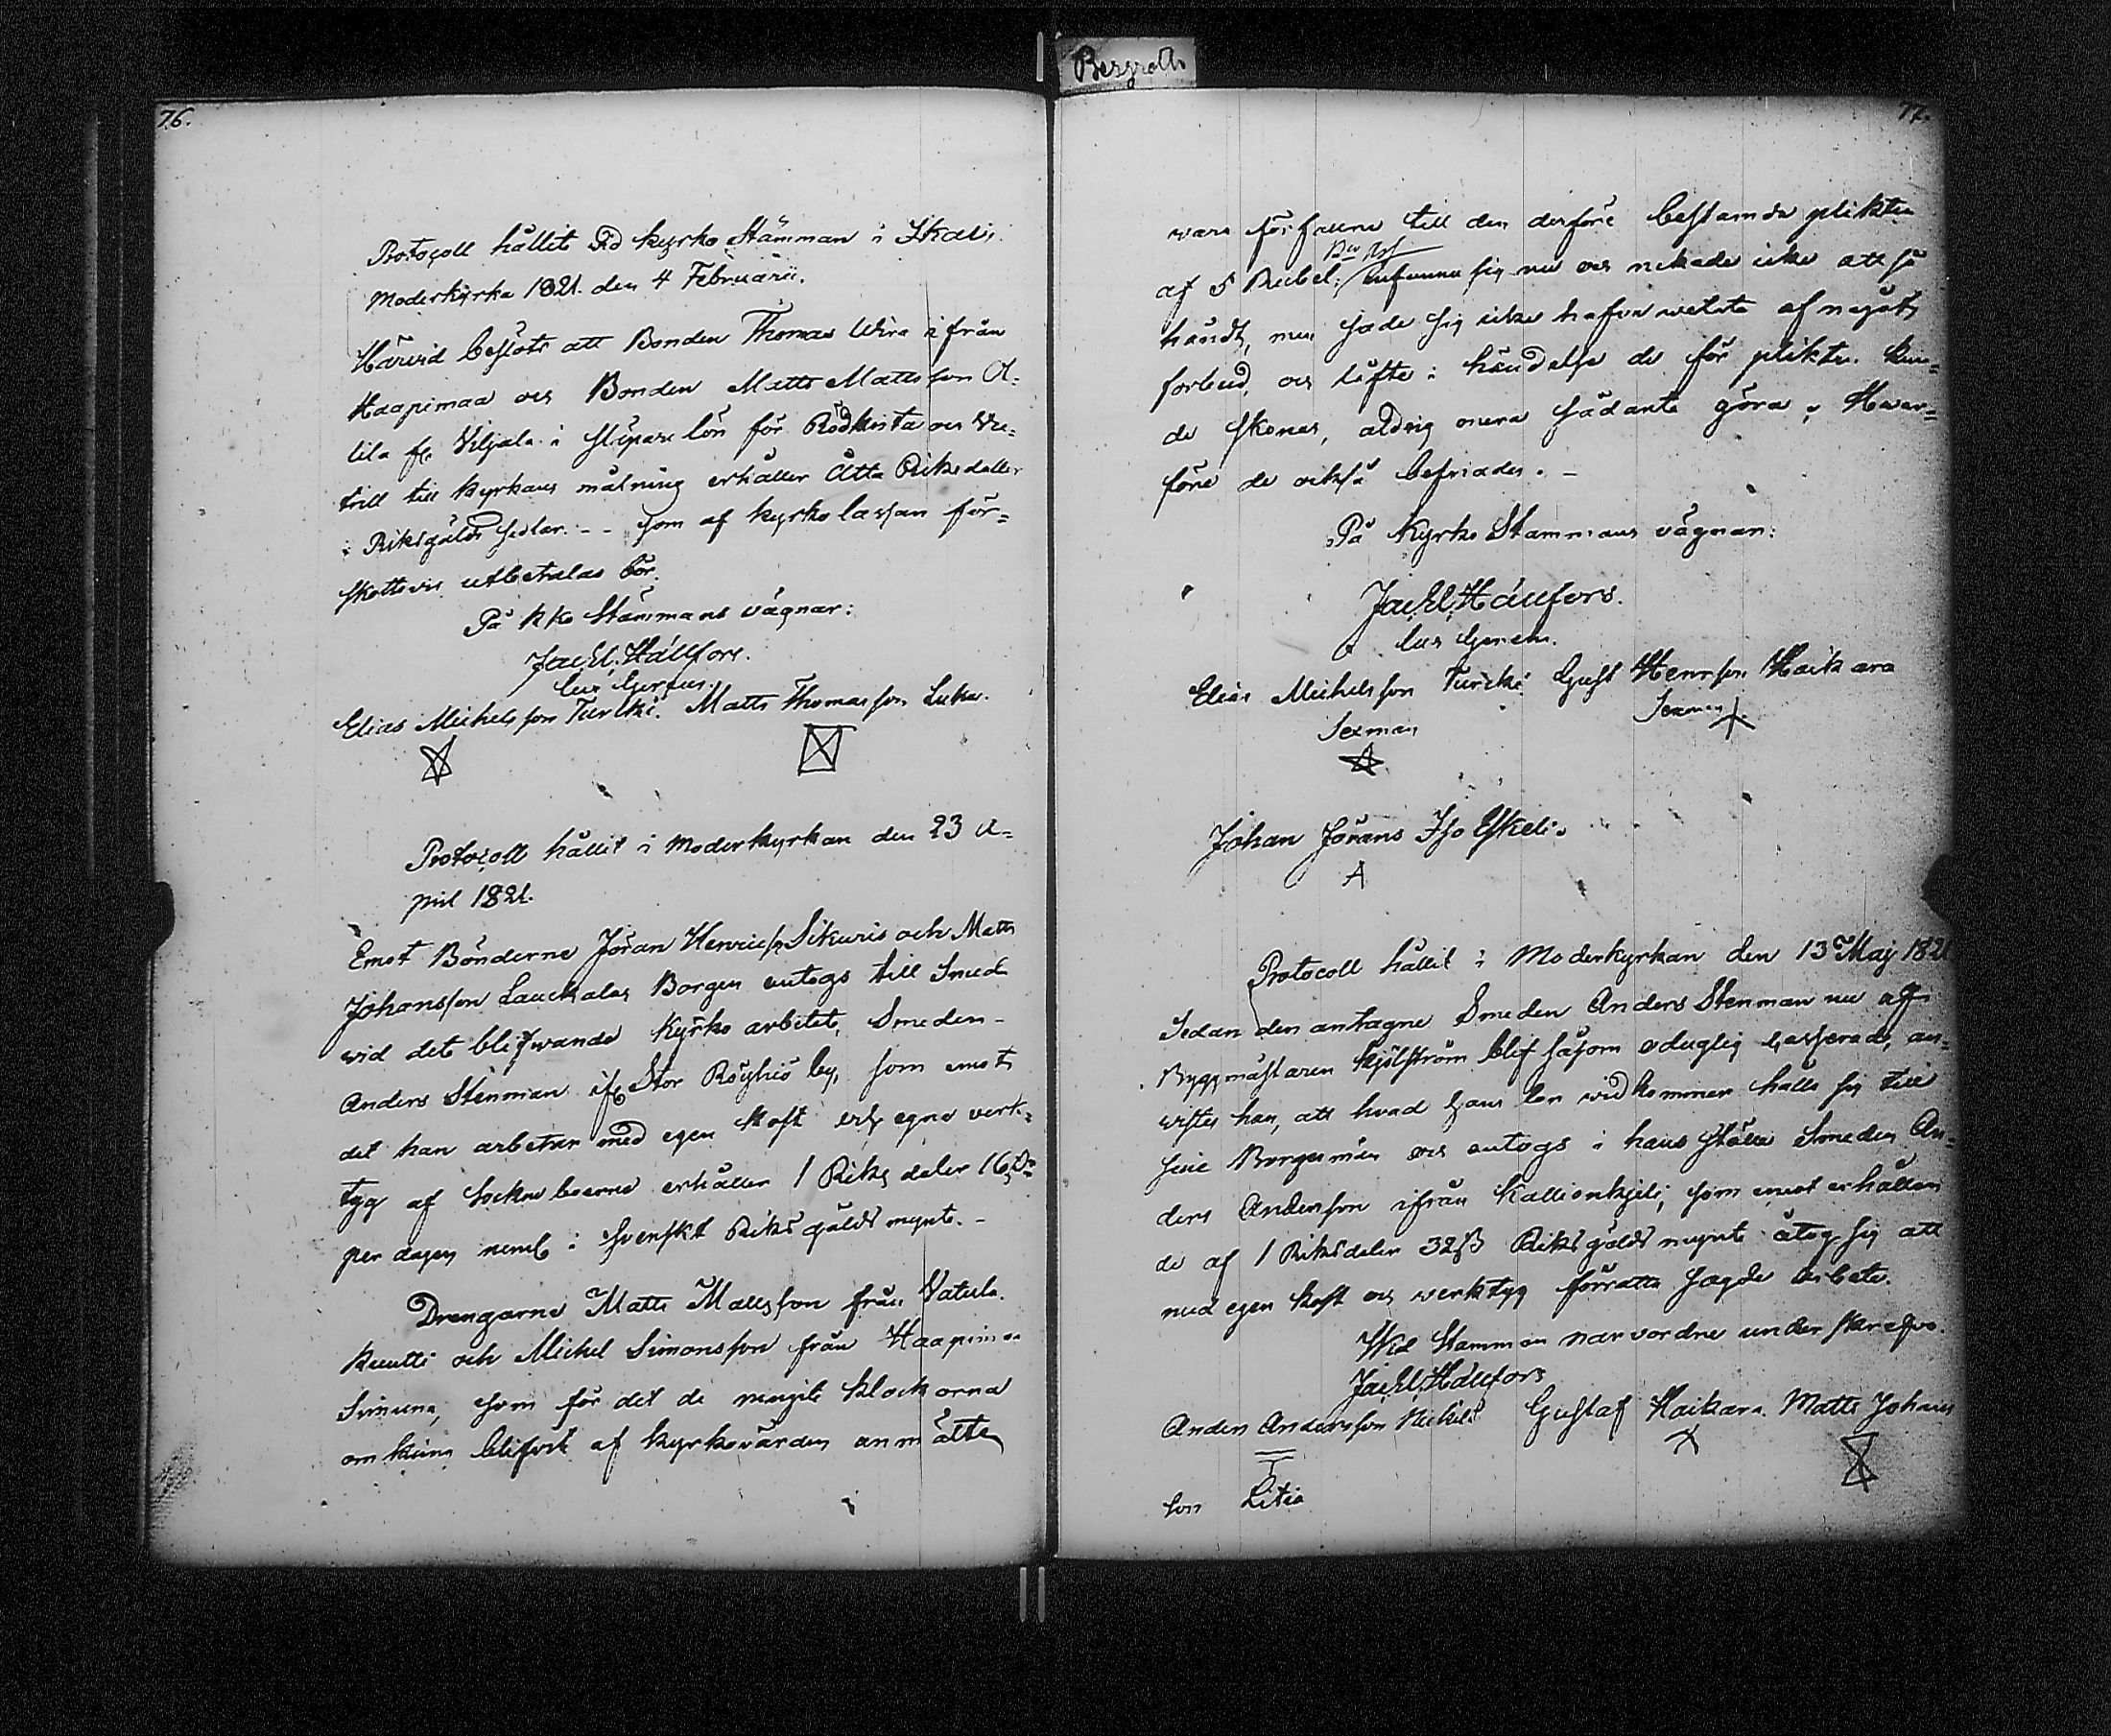 Bergroth
76.
Protocoll hållit vid kyrko Stämman i Ikalis
Moderkyrka 1821. den 4 Februarii.
Härvid beslöts att Bonden Thomas Wira ifrån
Haapimaa och Bonden Matts Mattsson A-
lila fr. Viljala i släpare lön för Rödkrita och Vic-
trill till kyrkans målning erhåller Åtta Riksdaller
i Riksgälds sedlar. - - som af kyrko cassan för-
skottsvis utbetalas bör.
På kko Stämmans vägnar:
Jac. El. Hällfors.
Elias Michelsson Turcki. Matts Thomasson Luka.
Protocoll hållit i Moderkyrkan den 23 A-
pril 1821.
Emot Bönderne Jöran Henricss. Sikuris och Matts
Johansson Lauckalas Borgen antogs till Smed
vid det blifwande Kyrko arbetet, Smeden
Anders Stenman ifr. Stor Röyhiö by, som emot
det han arbetar med egen kost och egna verk-
tyg af Sockne boerne erhåller 1 Riks daler 16 s.
per dagen neml. i svenskt Riks gälds mynt. -
Drengarne Matts Mattsson från Vatula
Kuutti och Michel Simonsson från Haapimaa
Simuna, som för det de ringt klockorna
omkring blifvit af kyrkovärden anmälte
77.
vara förfallne till den derföre bestämda plikten
af 5 Rubel; infunno sig nu och nekade icke att så
händt, men sade sig icke hafva vetat af något
forbud, och löfte i händelse de för plikten kun-
de skonas, aldrig mera sådant göra; Hvar-
före de också befriades. -
På Kyrko Stämmans vägnar:
Jac. El. Hällfors.
Elias Michelsson Turcki Gust. Henrsson Haikara
Sexman Sexman
Johan Jörans Iso Eskeli.
Protocoll hållit i Moderkyrkan den 13 Maj 1821
Sedan den antagne Smeden Anders Stenman nu af
Byggmästaren Kjölström blif såsom oduglig casserad, an-
vistes han, att hvad hans lön vidkommer hålla sig till
sine Borgesmän och antogs i hans ställe Smeden An-
ders Andersson ifrån Kallionkjeli, som emot erhållan-
de af 1 Riksdaler 32 ß Riks gälds mynt åtog sig att
med egen kost och verktyg förrätta sagde arbete.
Wid Stamman närvordne underskrefvo.
Jac. El. Hällfors
Anders Andersson Nickeli Gustaf Haikara. Matts Johans
son Litia